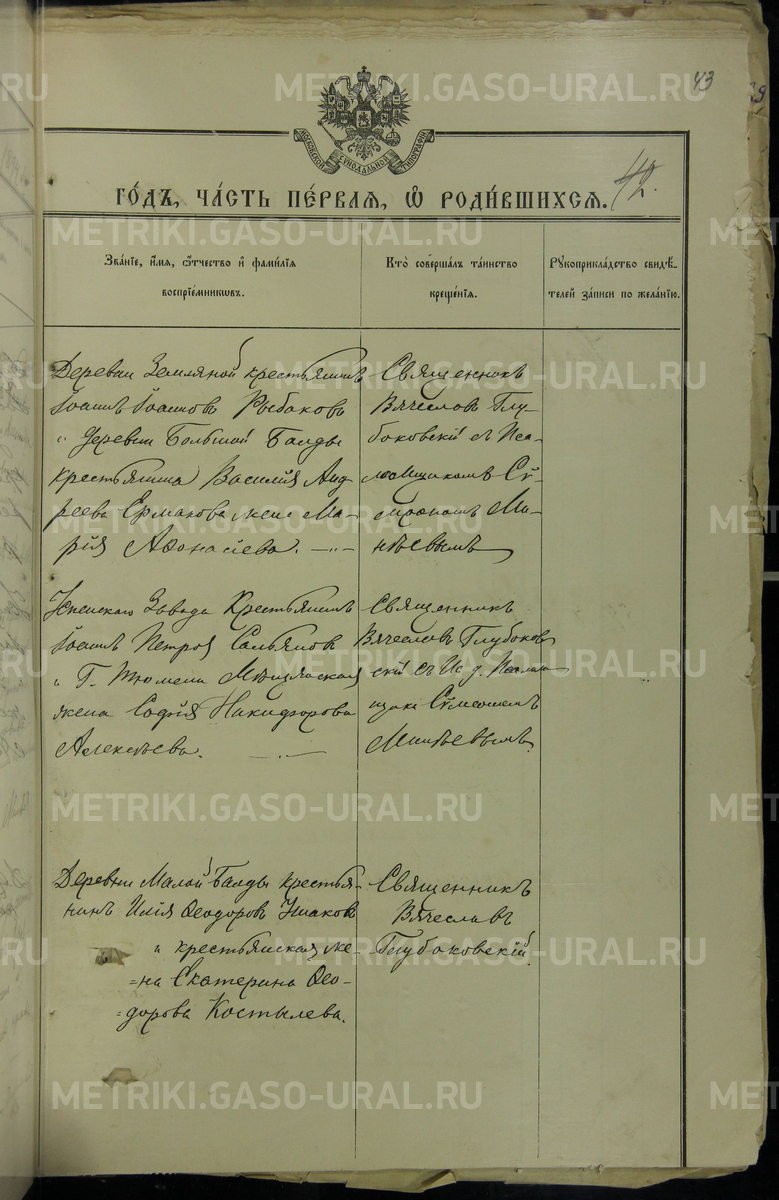 43
МОСКОВСКОЙ СѴНОДАЛЬНОЙ ТИПОГРАФІИ
42.
ГО́ДЪ, ЧА́СТЬ ПЕ́РВАЯ, Ѡ҆ РОДИ́ВШИХСЯ.
Зва́нїе, и҆́мя, ѻ҆́тчество и҆ фами́лїя
воспрїе́мниковъ.
Кто̀ соверша́лъ та́инство
креще́нїя.
Рꙋкоприкла́дство свидѣ́-
телей за́писи по жела́нїю.
Деревни Земляной крестьянинъ
Іоаннъ Іоанновъ Рыбаковъ
и деревни Большой Балды
крестьянина Василія Анд
реева Ермакова жена Ма-
рія Аѳонасіева.
Священникъ
Вячеславъ Глу-
боковскій съ Пса-
ломщикомъ Сѵ-
меономъ Ми-
нѣевымъ
Успенскаго Завода Крестьянинъ
Іоаннъ Петровъ
и Г. Тюмени Мѣщанская
жена Софія Никифорова
Алексѣева.
Священникъ
Вячеславъ Глубоков
скій съ И. д. Псалом
щика Сѵмеономъ
Минѣевымъ
Деревни Малой Балды крестья-
нинъ Илія Ѳеодоровъ Ушаковъ
и крестьянская же-
=на Екатерина Ѳео-
=дорова Костылева.
Священникъ
Вячеславъ
Глубоковскій
METRIKI.GASO-URAL.RU